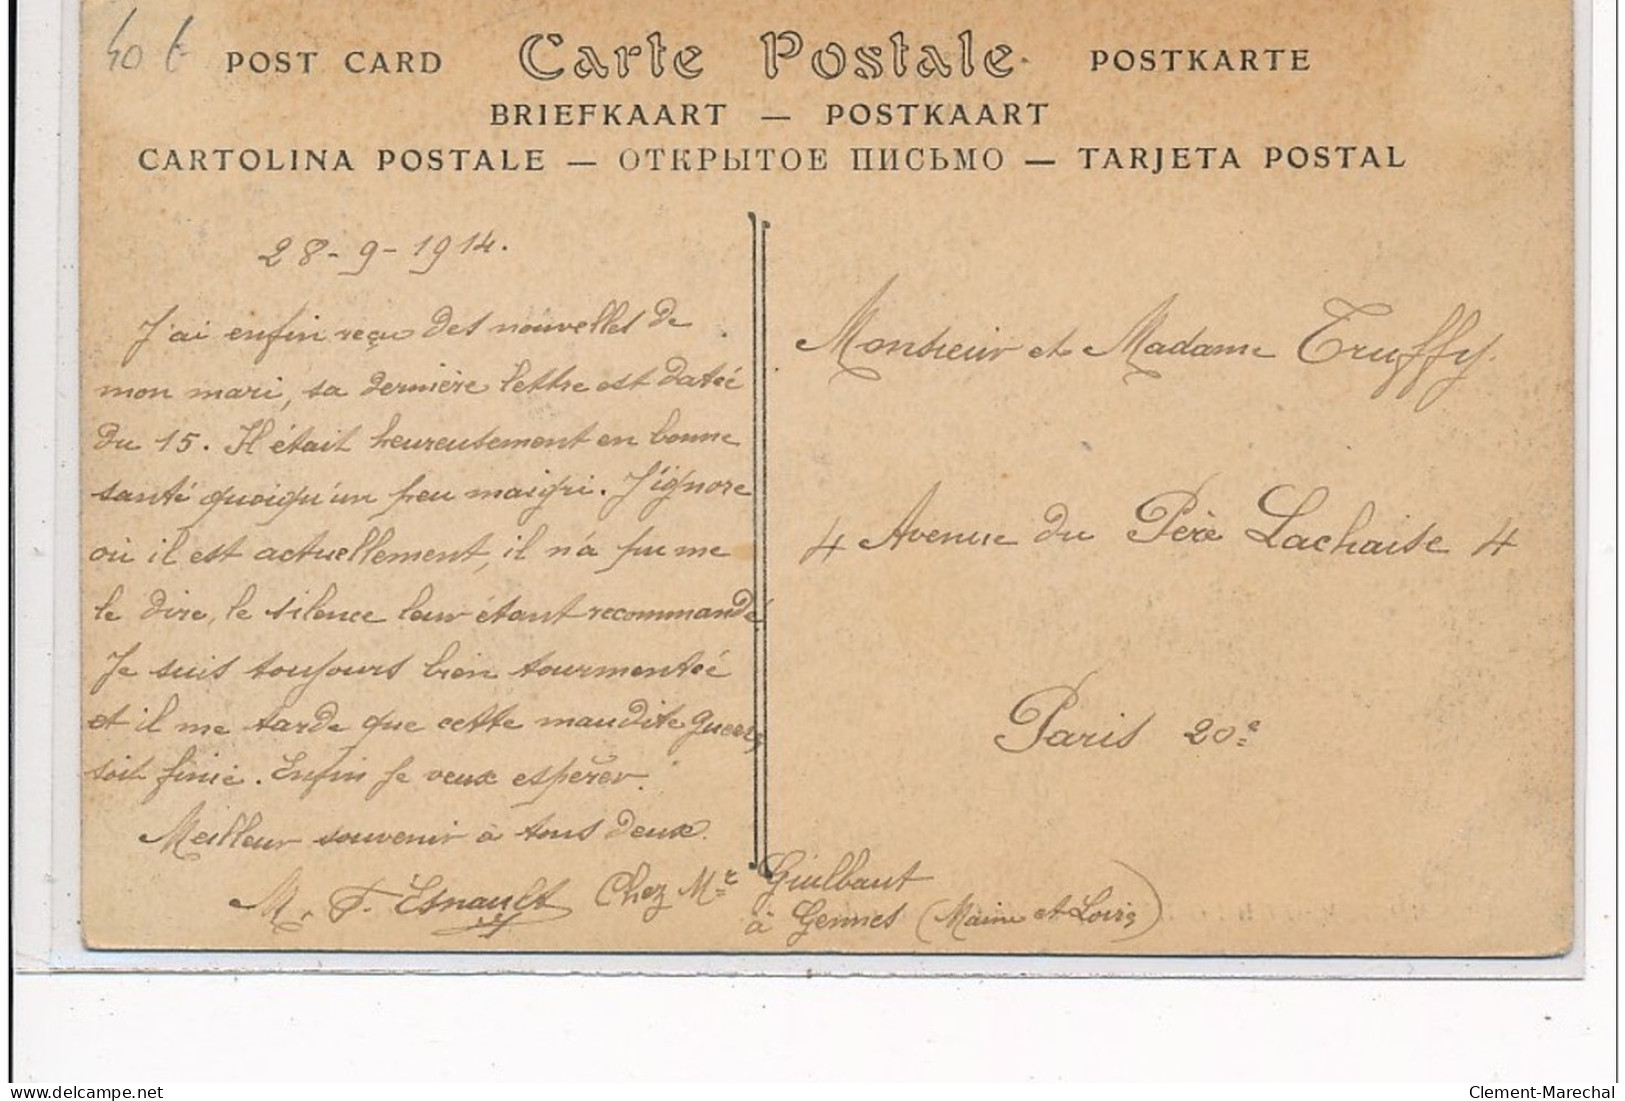 40 €
POST CARD Carte Postale POSTKARTE
BRIEFKAART — POSTKAART
CARTOLINA POSTALE — ОТКРЫТОЕ ПИСЬМО — TARJETA POSTAL
28-9-1914.
J'ai enfin reçu des nouvelles de
mon mari, sa dernière lettre est datée
du 15. Il était heureusement en bonne
santé quoiqu'un peu maigri. J'ignore
où il est actuellement, il n'a pu me
le dire, le silence leur étant recommandé.
Je suis toujours bien tourmentée
et il me tarde que cette maudite guerre
soit finie. Enfin je veux espérer.
Meilleur souvenir à tous deux.
M. F. Esnault Chez Mr Guilbaut
à Gennes (Maine et Loire)
Monsieur et Madame Truffy.
4 Avenue du Père Lachaise 4
Paris 20e
delcampe.net
Clement-Marechal